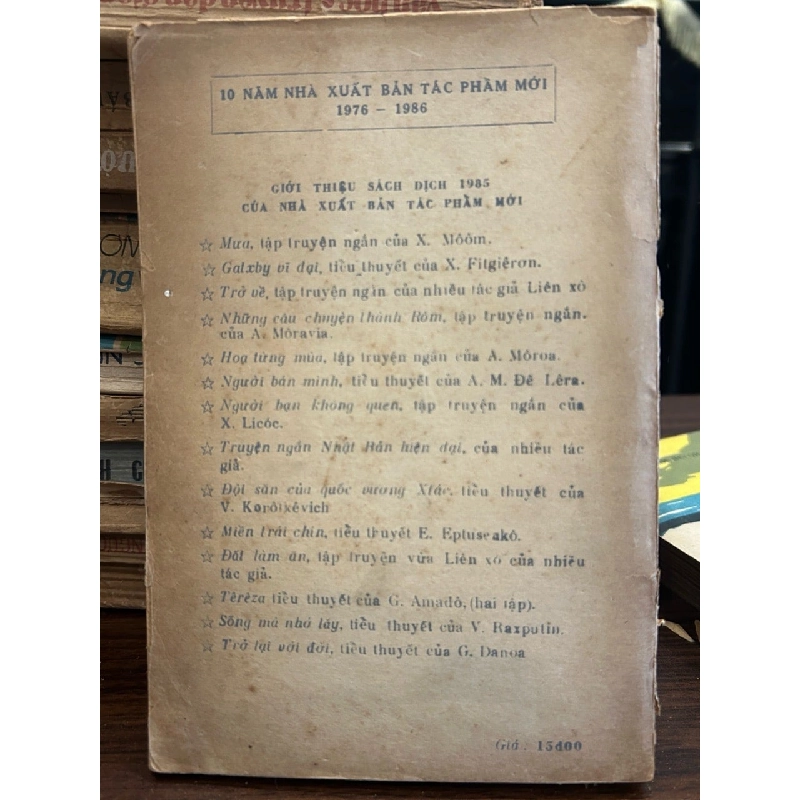 10 NĂM NHÀ XUẤT BẢN TÁC PHẨM MỚI
1976 - 1986
GIỚI THIỆU SÁCH DỊCH 1985
CỦA NHÀ XUẤT BẢN TÁC PHẨM MỚI
☆ Mưa, tập truyện ngắn của X. Môôm.
☆ Galxby vĩ đại, tiểu thuyết của X. Fitgiêrơn.
☆ Trở về, tập truyện ngắn của nhiều tác giả Liên xô
☆ Những câu chuyện thành Rôm, tập truyện ngắn.
của A. Môravia.
☆ Hoạ từng mùa, tập truyện ngắn của A. Môroa.
☆ Người bán mình, tiểu thuyết của A. M. Đê Lêra.
☆ Người bạn không quen, tập truyện ngắn của
X. Licóc.
☆ Truyện ngắn Nhật Bản hiện đại, của nhiều tác
giả.
☆ Đội săn của quốc vương Xtác, tiểu thuyết của
V. Korôtkêvich
☆ Miền trái chín, tiểu thuyết E. Eptuseakô.
☆ Đất làm ăn, tập truyện vừa Liên xô của nhiều
tác giả.
☆ Têrêza tiểu thuyết của G. Amađô, (hai tập).
☆ Sống mà nhớ lấy, tiểu thuyết của V. Raxputin.
☆ Trở lại với đời, tiểu thuyết của G. Danoa
Giá: 15đ00